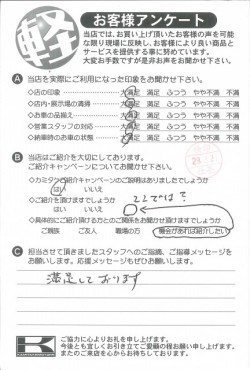 軽
お客様アンケート
当店では、お買い上げ頂いたお客様の声を可能
な限り現場に反映し、お客様により良い商品と
サービスを提供する事に努めています。
大変お手数ですが是非お声をお聞かせ下さい。
A 当店を実際にご利用になった印象をお聞かせ下さい。
◇店の印象 大満足 満足 ふつう やや不満 不満
◇店内・展示場の清掃 大満足 満足 ふつう やや不満 不満
◇お車の品揃え 大満足 満足 ふつう やや不満 不満
◇営業スタッフの対応 大満足 満足 ふつう やや不満 不満
◇納車時のお車の状態 大満足 満足 ふつう やや不満 不満
B 当店はご紹介を大切にしております。
ご紹介キャンペーンについてお聞かせ下さい。
◇カミタケご紹介キャンペーンのご説明はありましたでしょうか
はい いいえ
◇ご紹介を頂けますでしょうか ここでは?
はい いいえ
◇具体的にご紹介頂ける方とのご関係をお聞かせ頂けますでしょうか
ご親族 ご友人 職場の方 機会があれば紹介したい
C 担当させて頂きましたスタッフへのご指摘、ご指導メッセージを
お願いします。応援メッセージもぜひお願いします。
満足しております
K
ご協力に心よりお礼を申し上げます。
今後とも宜しくお引き立てご愛顧の程お願い申し上げます。
またのご来店を心からお待ちしております。